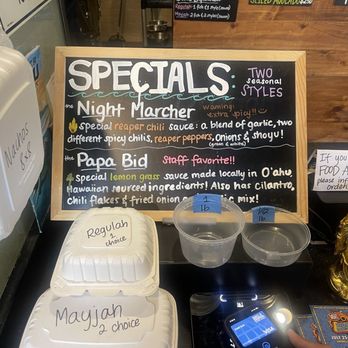 SLICED AVOCADO
SPECIALS:
TWO
seasonal
STYLES
the Night Marcher
warning!
extra spicy!!
special reaper chili sauce: a blend of garlic, two
different spicy chilis, reaper peppers, onions & shoyu!
(green & white)
the Papa Bid
Staff favorite!!
special lemon grass sauce made locally in O'ahu,
Hawaiian sourced ingredients! Also has cilantro,
chili flakes & fried onion mix!
Regulah
2 choice
Mayjah
2 choice
1
lb
1/2
lb
If you
FOOD A
please in
order
VISA
JULY 25